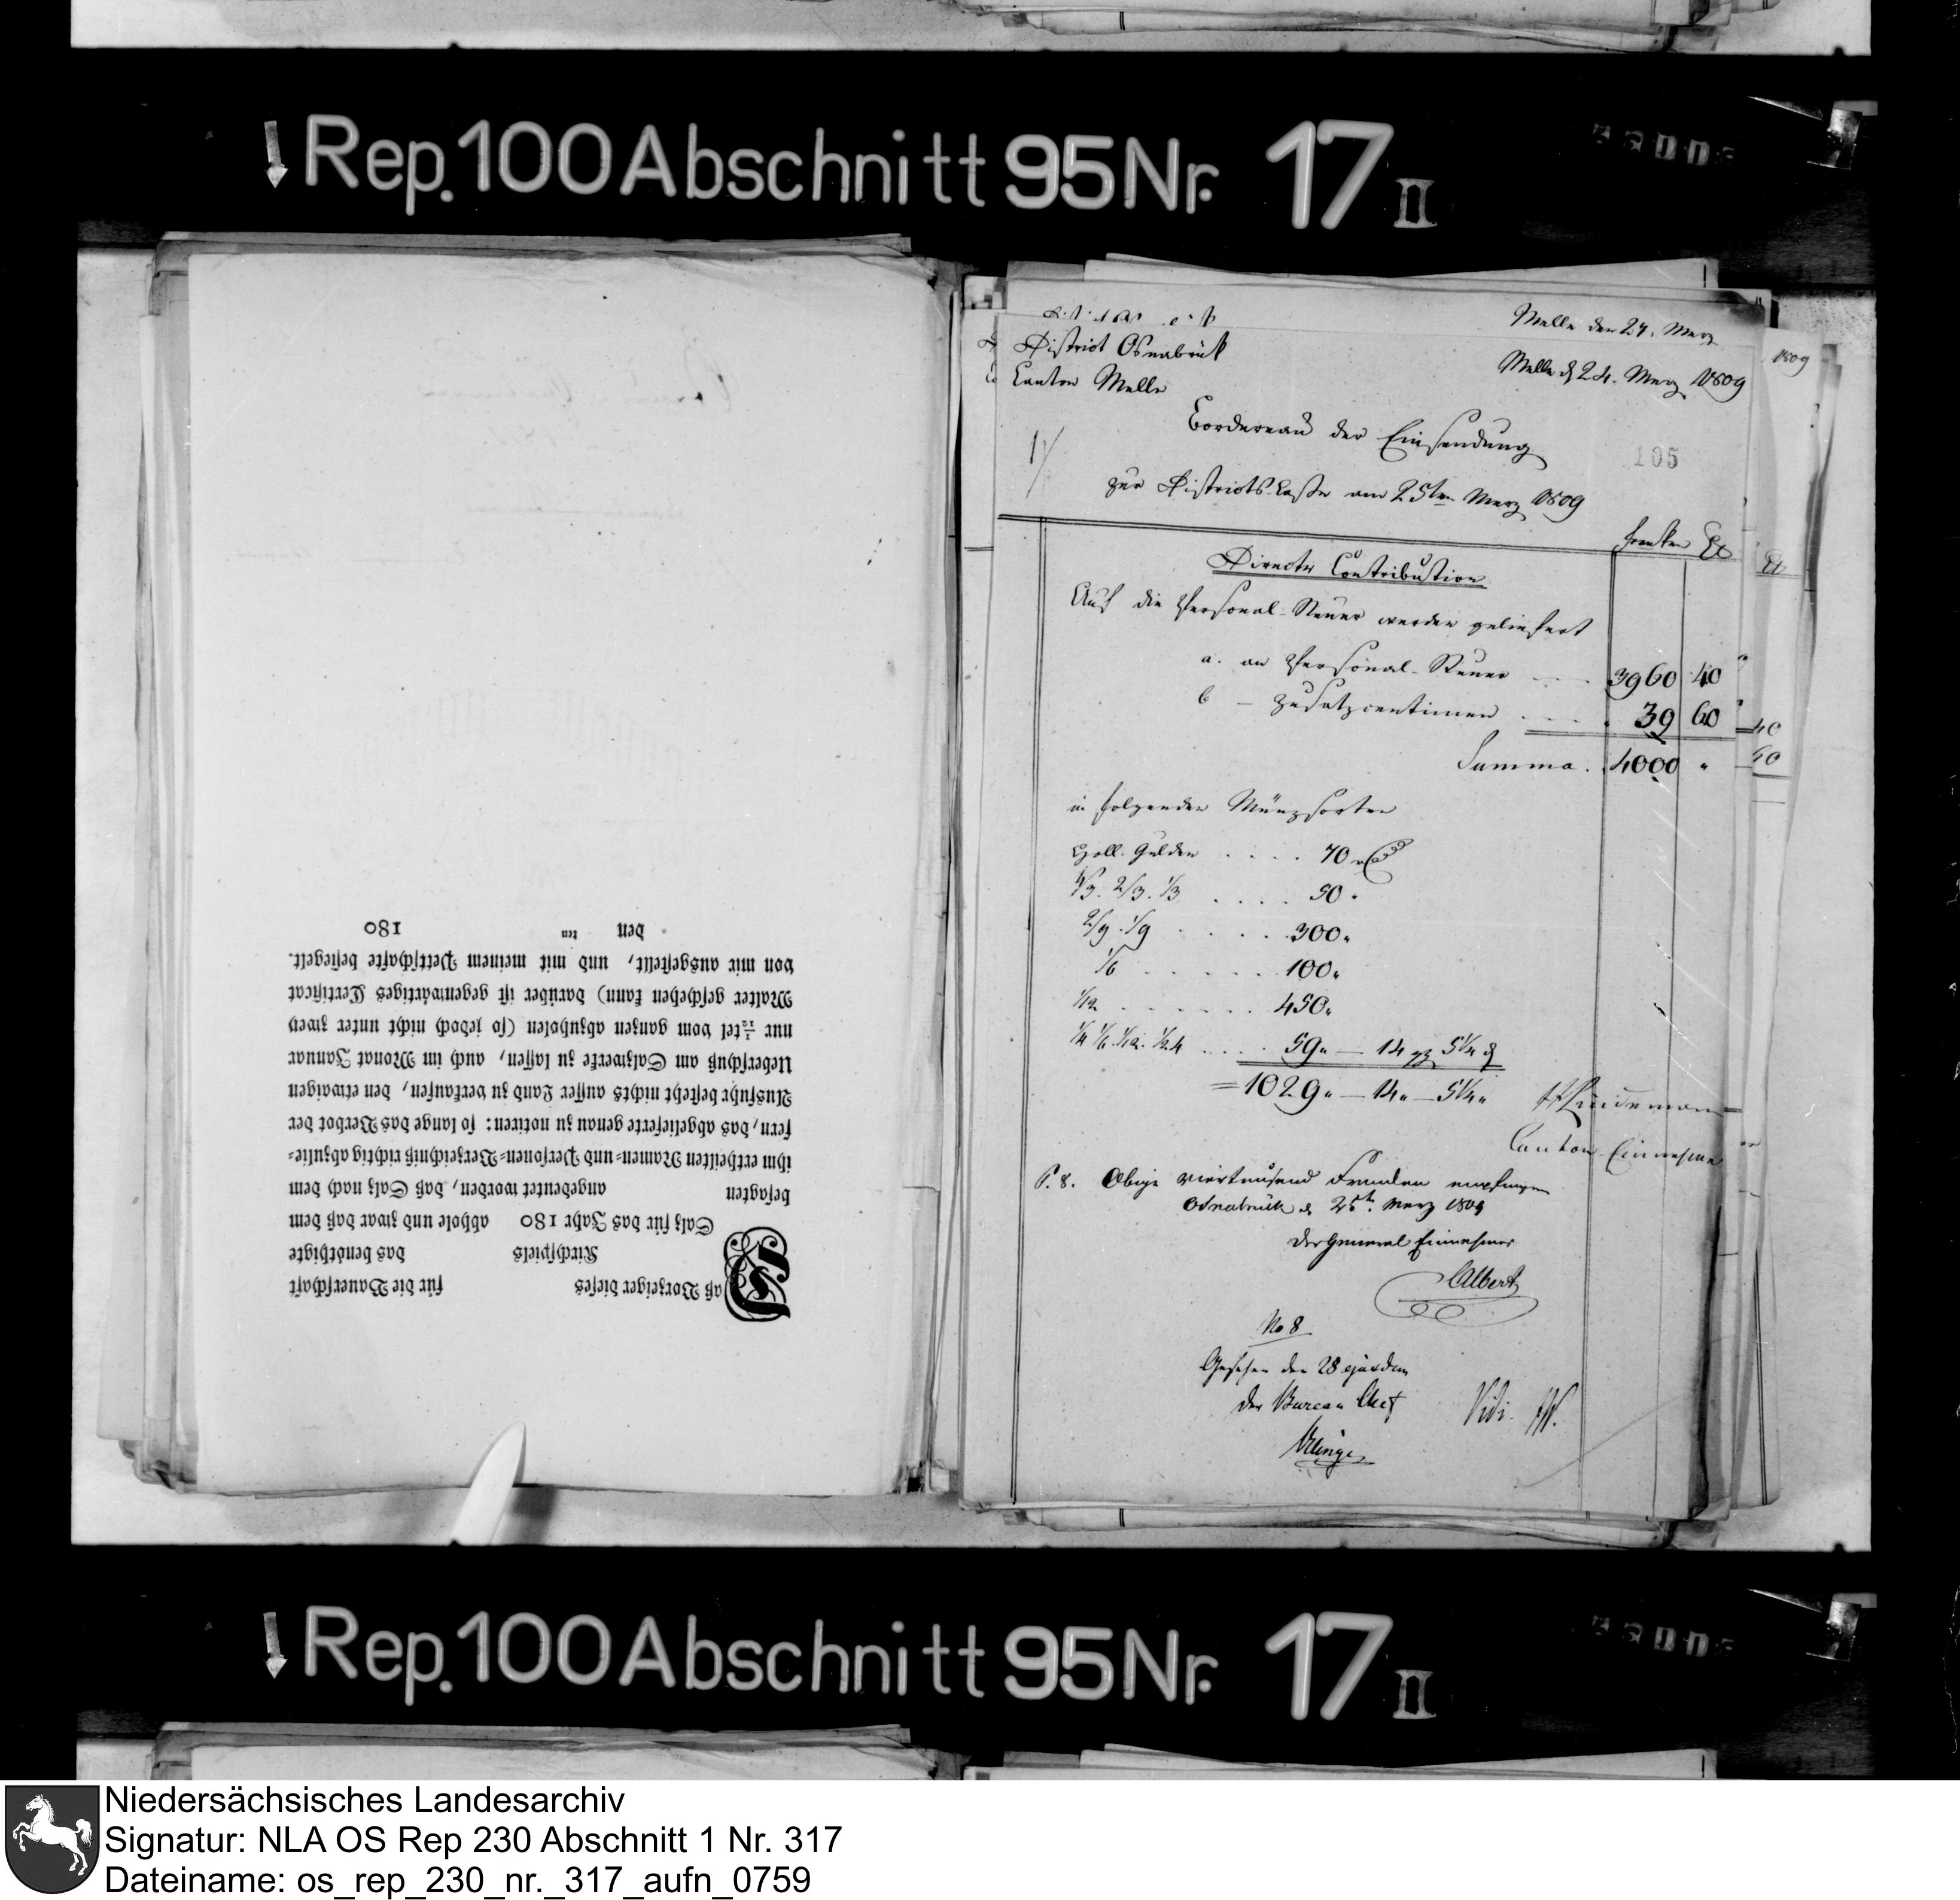 Rep. 100 Abschnitt 95 Nr. 17 II
Daß Vorzeiger dieses für die Bauerschaft
Kirchspiels das benöthigte
Salz für das Jahr 180 abhole und zwar daß dem
besagten angedeutet worden, daß Salz nach dem
ihm ertheilten Namen- und Personen-Verzeichniß richtig abzulie-
fern, das abgelieferte genau zu notiren: so lange das Verbot der
Ausfuhr besteht nichts ausser Land zu verkaufen, den etwaigen
Ueberschuß am Salzwerke zu lassen, auch im Monat Januar
nur 1/12tel vom ganzen abzuholen (so jedoch nicht unter zwey
Malter geschehen kann) darüber ist gegenwärtiges Certificat
von mir ausgestellt, und mit meinem Pettschafte besiegelt.
den ten 180
Melle den 24. Merz
1809
District Osnabrück
Canton Melle
Melle d 24. Merz 1809
Bordereau der Einsendung
105
zur Districts-Casse am 25ten Merz 1809
Franken Ct
Directe Contribution
Auf die Personal-Steuer werden geliefert
a. an Personal-Steuer 3960 40
b — Zusatzcentimen 39 60
Summa. 4000 "
in folgenden Münzsorten
Holl. Gulden . . . . 70
4/3. 2/3. 1/3 . . . . 50 "
2/9. 1/9 . . . . 300 "
1/6 . . . . 100 "
1/12 . . . . 450 "
1/4 1/6 1/12. 1/24 . . . . 59 " — 14 gg 5 1/4 d
= 1029 " — 14 " — 5 1/4 "
Lindemann
Canton-Einnehmer
P. 8. Obige viertausend Franken empfangen
Osnabrück d 25t. Merz 1809
Der General Einnehmer
Albert
No 8
Gesehen den 28 ejusdem
Der Bureau Chef
Vidi.
Rep. 100 Abschnitt 95 Nr. 17 II
Niedersächsisches Landesarchiv
Signatur: NLA OS Rep 230 Abschnitt 1 Nr. 317
Dateiname: os_rep_230_nr._317_aufn_0759